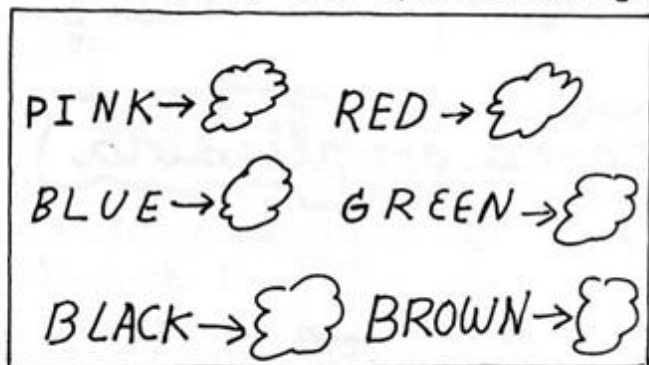 PINK→ RED→
BLUE→ GREEN→
BLACK→ BROWN→